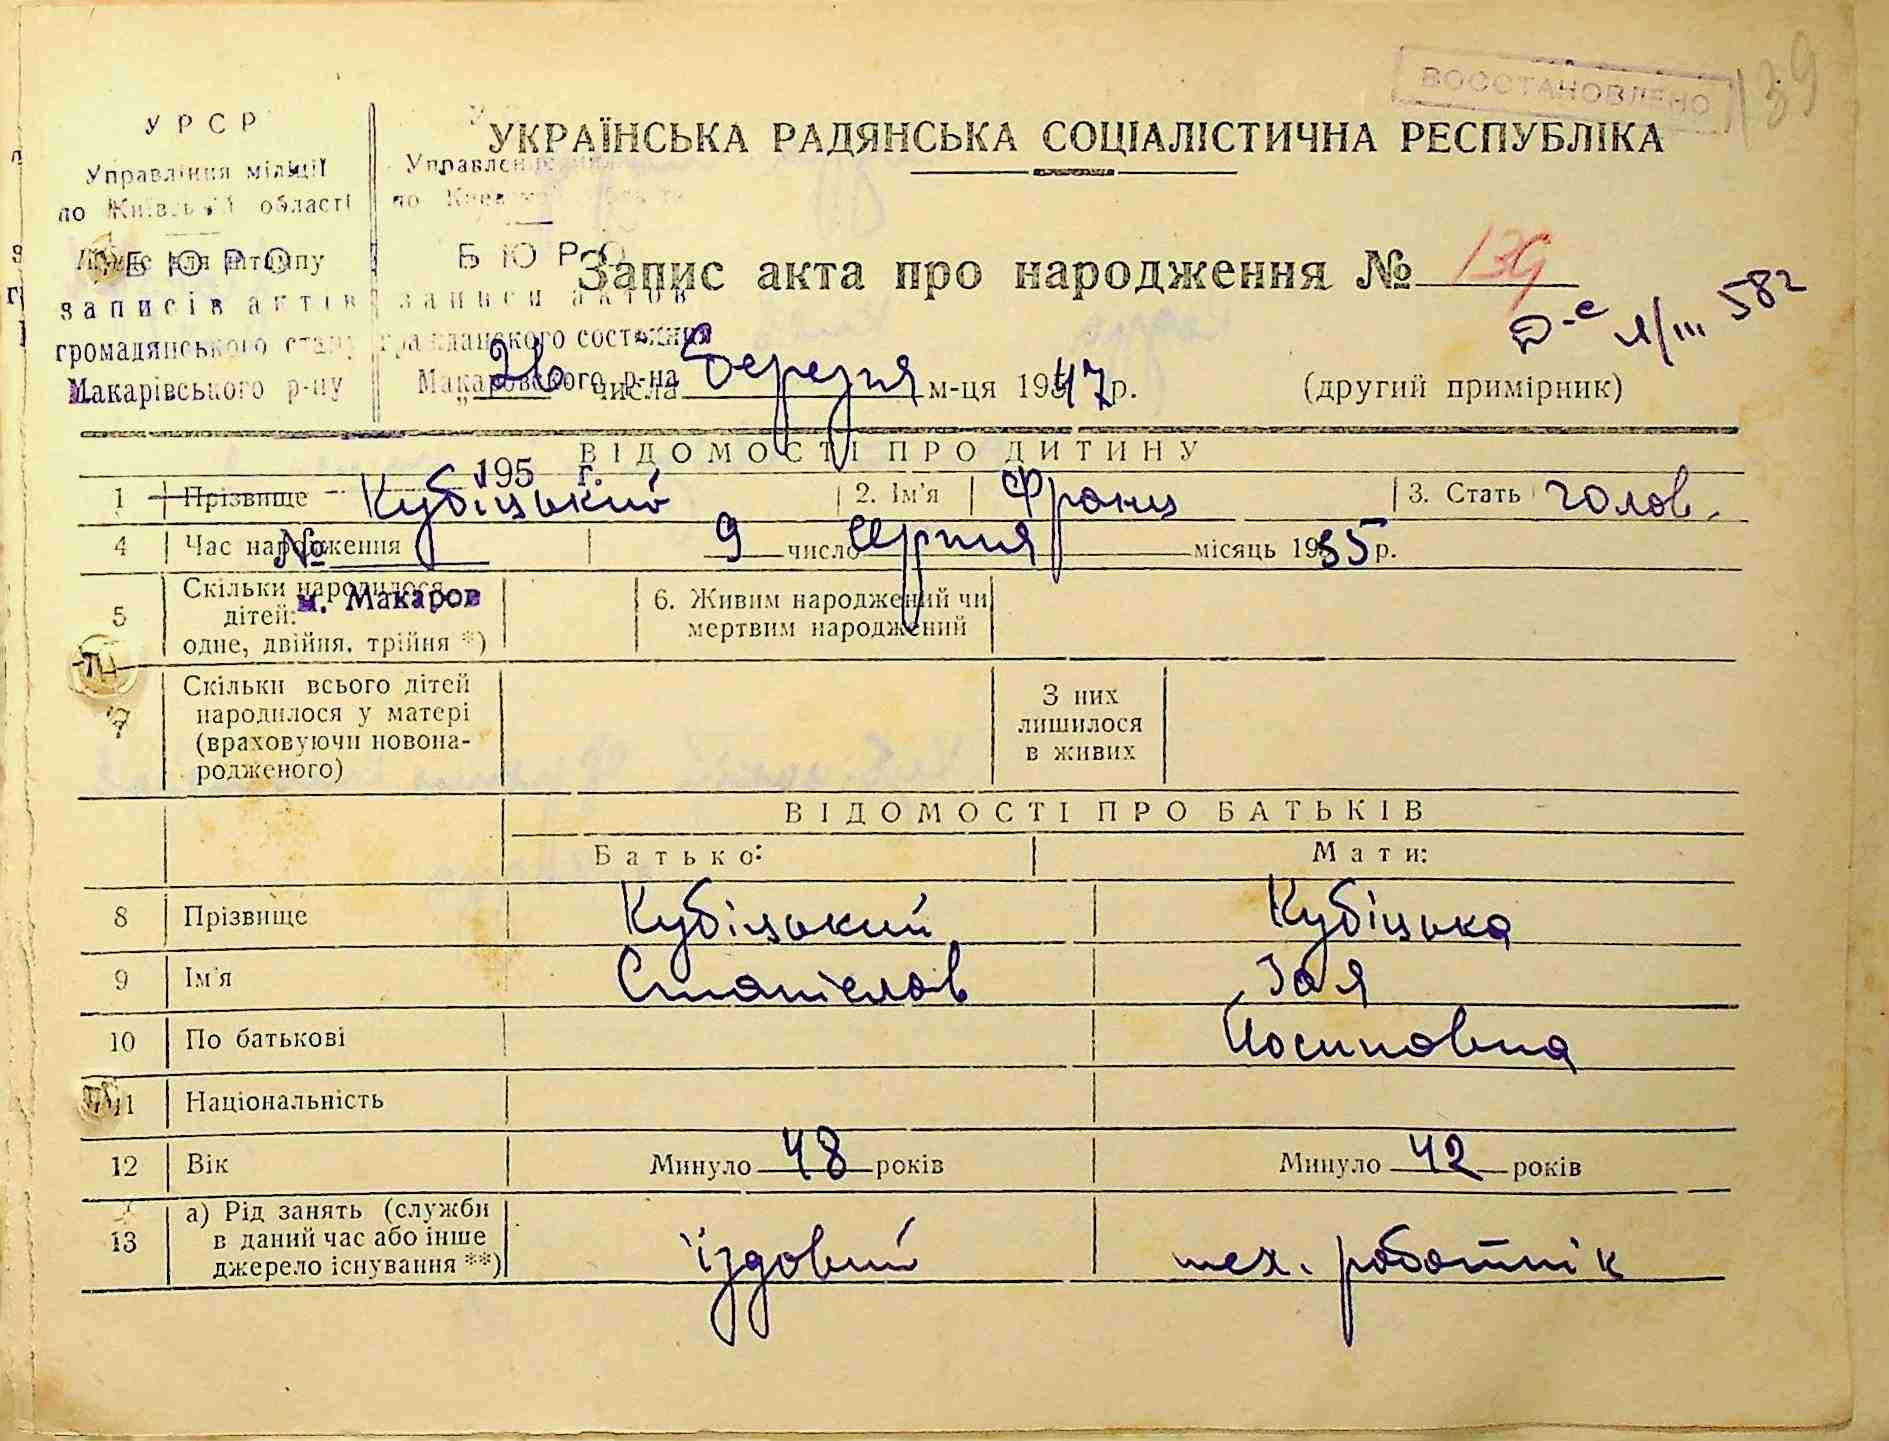 ВОССТАНОВЛЕНО
139
УРСР
Управління міліції
по Київській області
БЮРО
записів актів
громадянського стану
Макарівського р-ну
по
БЮРО
записи актов
гражданского состояния
Макаровского р-на
195 г.
№
м. Макаров
УКРАЇНСЬКА РАДЯНСЬКА СОЦІАЛІСТИЧНА РЕСПУБЛІКА
Запис акта про народження № 139
582
„26 числа Березня м-ця 1947 р. (другий примірник)
ВІДОМОСТІ ПРО ДИТИНУ
1 Прізвище Кубіцький 2. Ім'я Франц 3. Стать чолов.
4 Час народження 9 число Серпня місяць 1935 р.
5 Скільки народилося
дітей:
одне, двійня, трійня *)
6. Живим народжений чи
мертвим народжений
7 Скільки всього дітей
народилося у матері
(враховуючи новона-
родженого)
З них
лишилося
в живих
ВІДОМОСТІ ПРО БАТЬКІВ
Батько: Мати:
8 Прізвище Кубіцький Кубіцька
9 Ім'я Станіслав Зоя
10 По батькові Йосиповна
11 Національність
12 Вік Минуло 48 років Минуло 42 років
13 а) Рід занять (служби
в даний час або інше
джерело існування **)
їздовий тех. роботнік